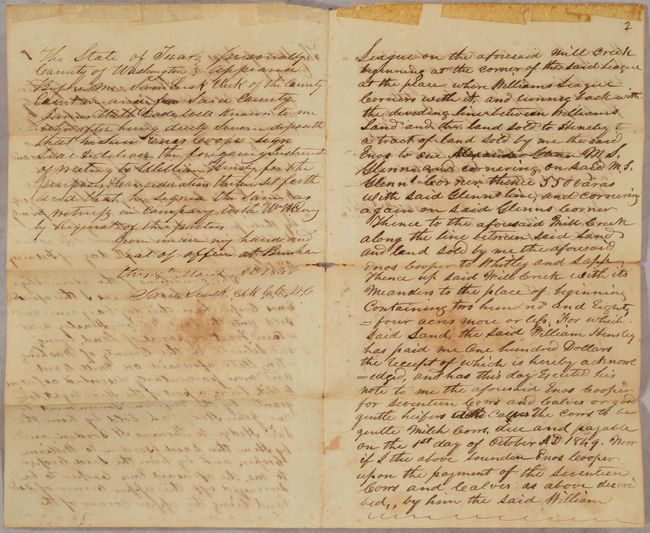 The State of Texas Personally
County of Washington appeared
Before me Sam Lusk Clerk of the County
Court in and for Said County
James well known to me
who after being duly Sworn deposeth
that he Saw Enos Cooper sign
Seal & deliver the foregoing instrument
of writing to William Hensley for the
purposes & Consideration therein Set forth
and that he Signed the Same as
a witness in company with Wm
by Request of the parties
Given under my hand and
Seal of office at Brenham
this 8th March AD 1848
Samuel Lusk Clk
2
League on the aforesaid Mill Creek
beginning at the corner of the said League
at the place when Williams League
Corners with it, and running back with
the deviding line between Williams
Land and the land sold to Hensley to
a tract of land Sold by me the said
Enos to one M. S.
Glenn and cornering on said M. S.
Glenns Corner thence 550 varas
with said Glenns line, and cornering
again on said Glenns Corner
Thence to the aforesaid Mill Creek
along the line between said land
and land sold by me the aforesaid
Enos Cooper to Whitley and Sapp
Thence up said Mill Creek with its
Meanders to the place of beginning
Containing two hundred and Eighty
=four acres more or less, For which
Said Land, the said William Hensley
has paid me One hundred Dollars
the Receipt of which is hereby acknowl
=edged, and has this day Executed his
note to me the aforesaid Enos Cooper
for Seventeen Cows and Calves or good
gentle heifers and Calves the cows to be
gentle Milch Cows, due and payable
on the 1st day of October AD 1849. Now
if I the above bounden Enos Cooper
upon the payment of the Seventeen
Cows and Calves as above descri
bed,, by him the said William